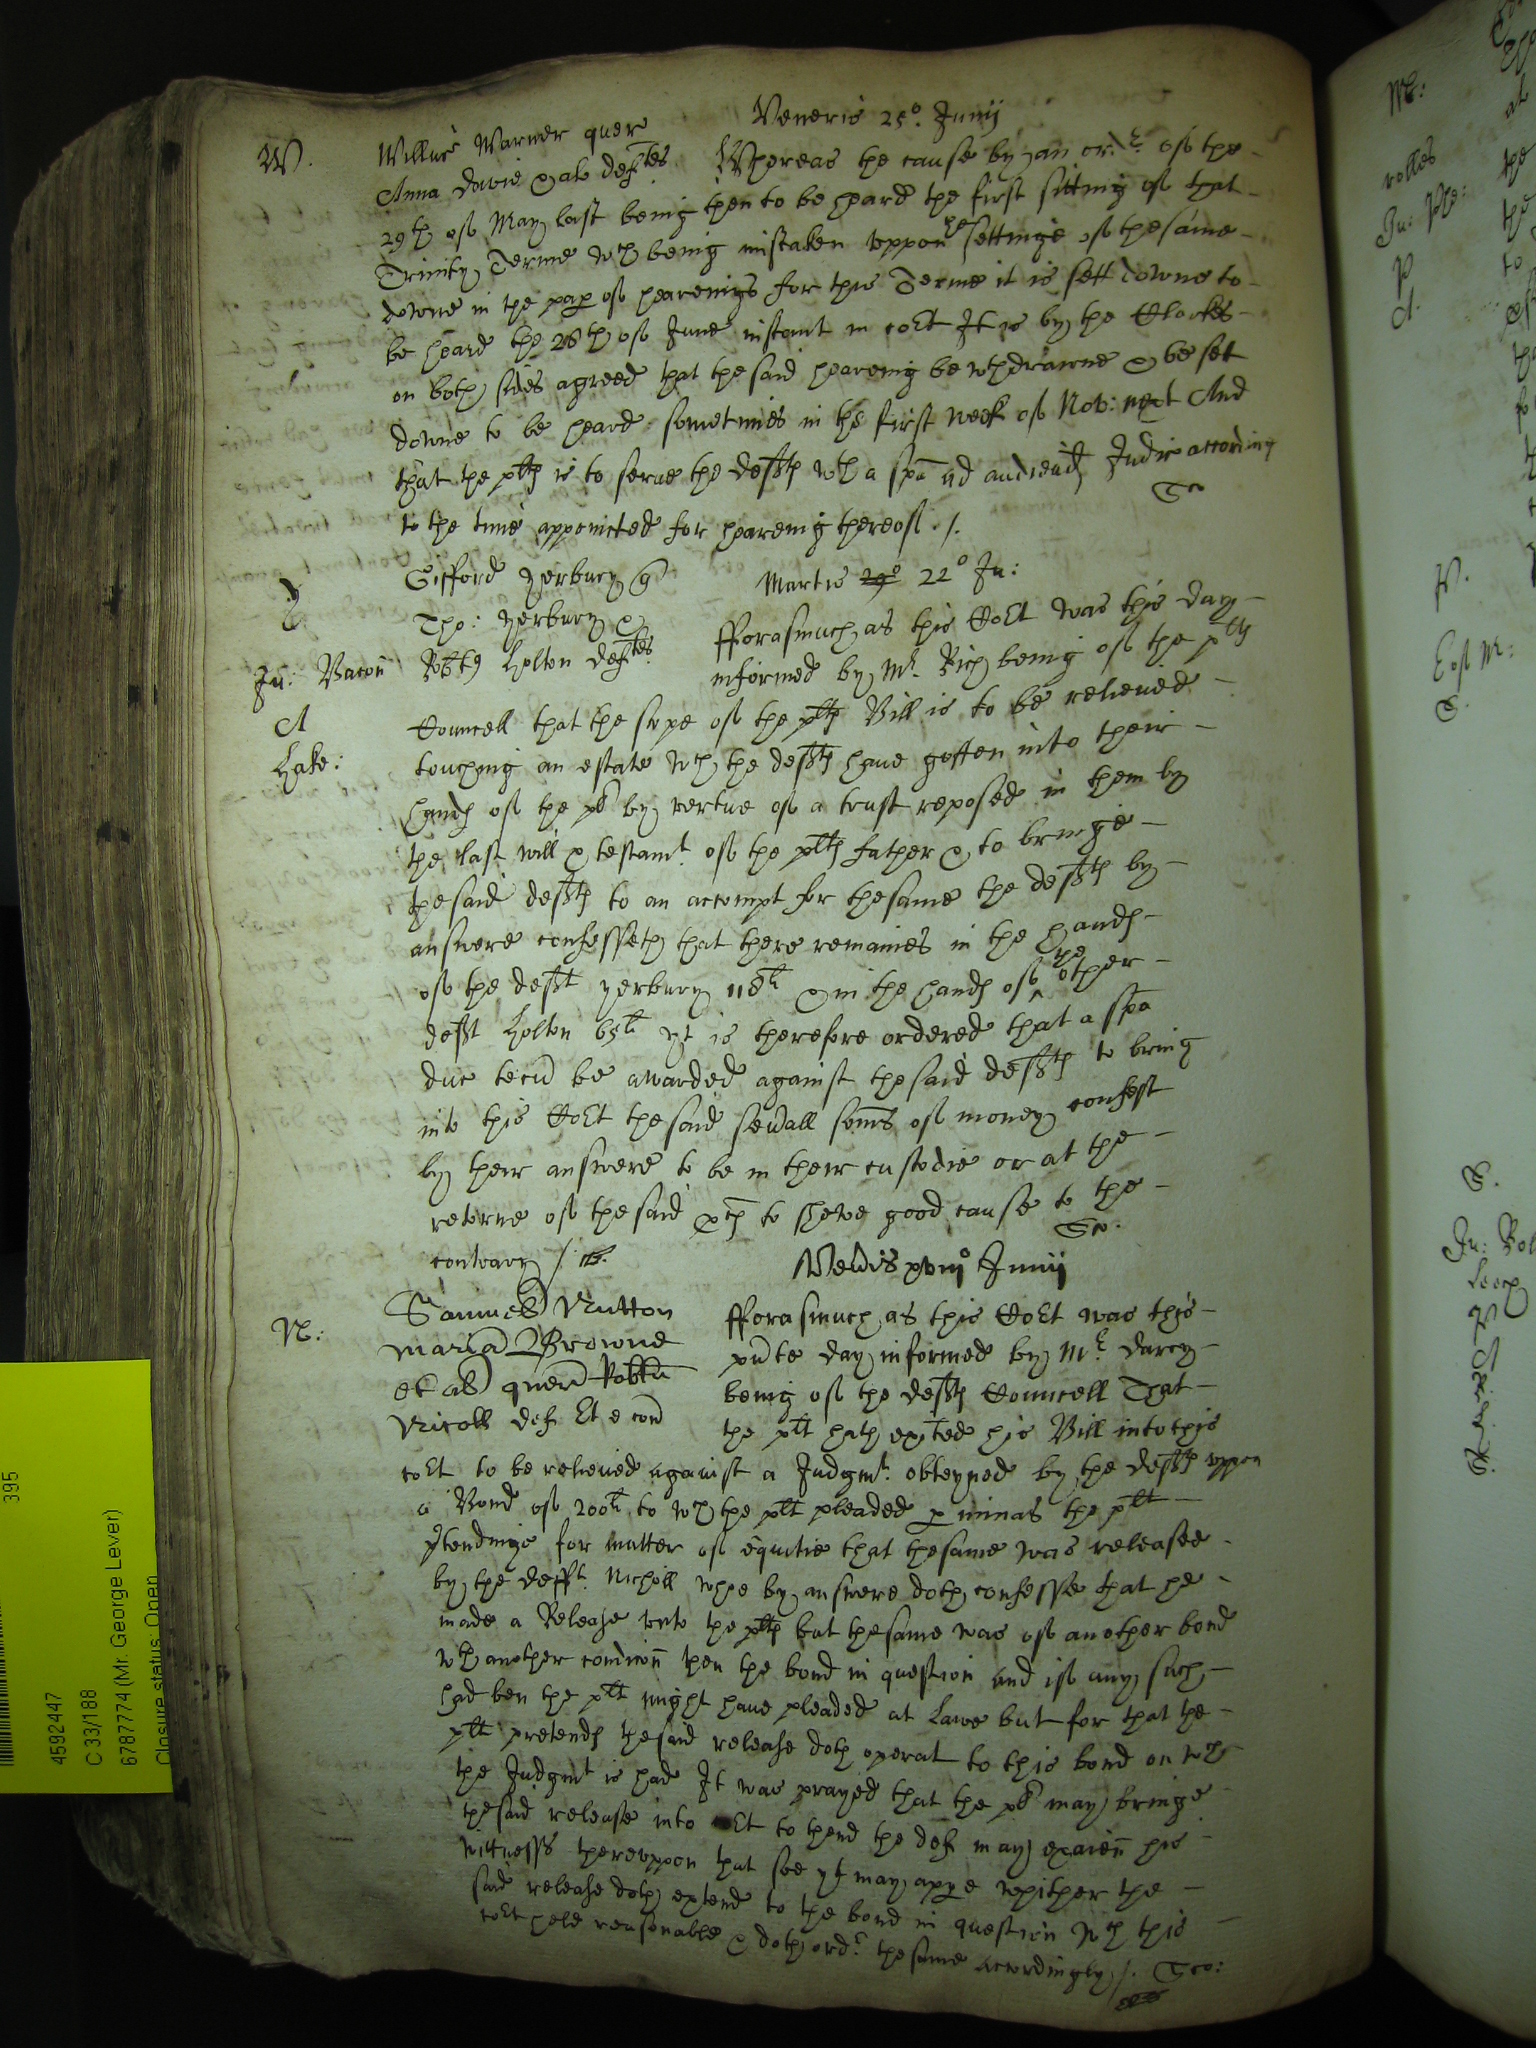 Veneris 25o. Junij
W. Willms Warner quer
Anna Davie & al deftes Whereas the cause by an ordr. of the
29th of May last being then to be heard the first sitting of that
Trinity Terme wch being mistaken vppon the settinge of the same
downe in the pap of hearenigs for this Terme it is sett downe to
be heard the 28th of June instant in cort It is by the Clarkes
on both sides agreed that the said hearenig be wthdrawne & be set
downe to be heard sometimes in the first week of Nov: next And
that the plth is to serue the defth wth a spa ad audiend Judic according
to the time appointed for hearenig thereof ./.
Gifford yerbury q Martis 29o 22o Ju:
Tho: yerbury &
Robtg Holton deftes. fforasmuch as this Cort was this day
Ju: Bacon informed by Mr. Rich being of the plts
A Councell that the scope of the plth Bill is to be relieued
Lake: touching an estate wch the defth haue gotten into their
hands of the pl by vertue of a trust reposed in them by
the last will & testamt. of the plth father & to bringe
the said defth to an accompt for the same the defth by
answere confesseth that there remaines in the hands
of the deft yerbury 118li & in the hands of the other
deft Holton 65li yt is therefore ordered that a spa
duc tecu be awarded against the said defth to bring
into this Cort the said seuall soms of money confest
by their answere to be in their custodie or at the
retorne of the said pch to shewe good cause to the
contrary /.
N: Samuel Nutton Junij
Maria Browne fforasmuch as this Cort was this
et al quer Robtu pnte day informed by Mr. Darcy
Nicoll def Et e con being of the defth Councell That
the plt hath exited his Bill into this
cort to be relieued against a Judgmt. obteyned by the defth vppon
a Bond of 200li to wch the plt pleaded p minas the plt
ptendinge for matter of equitie that the same was released
by the defft. Nicholl whoe by answere doth confesse that he
made a Release vnto the plth but the same was of another bond
wth another condicon then the bond in question and if any such
had ben the plt might haue pleaded at Lawe but for that the
plt pretends the said release doth operat to this bond on wch
the Judgmt is had It was prayed that the pl may bringe
the said release into Cort to thend the def may exaien his
witnesss therevppon that soe yt may appe whither the
said release doth extend to the bond in question wch this
cort held reasonable & doth ordr the same accordingly /.
395
4592447
C 33/188
6787774 (Mr. George Lever)
Closure status: Open